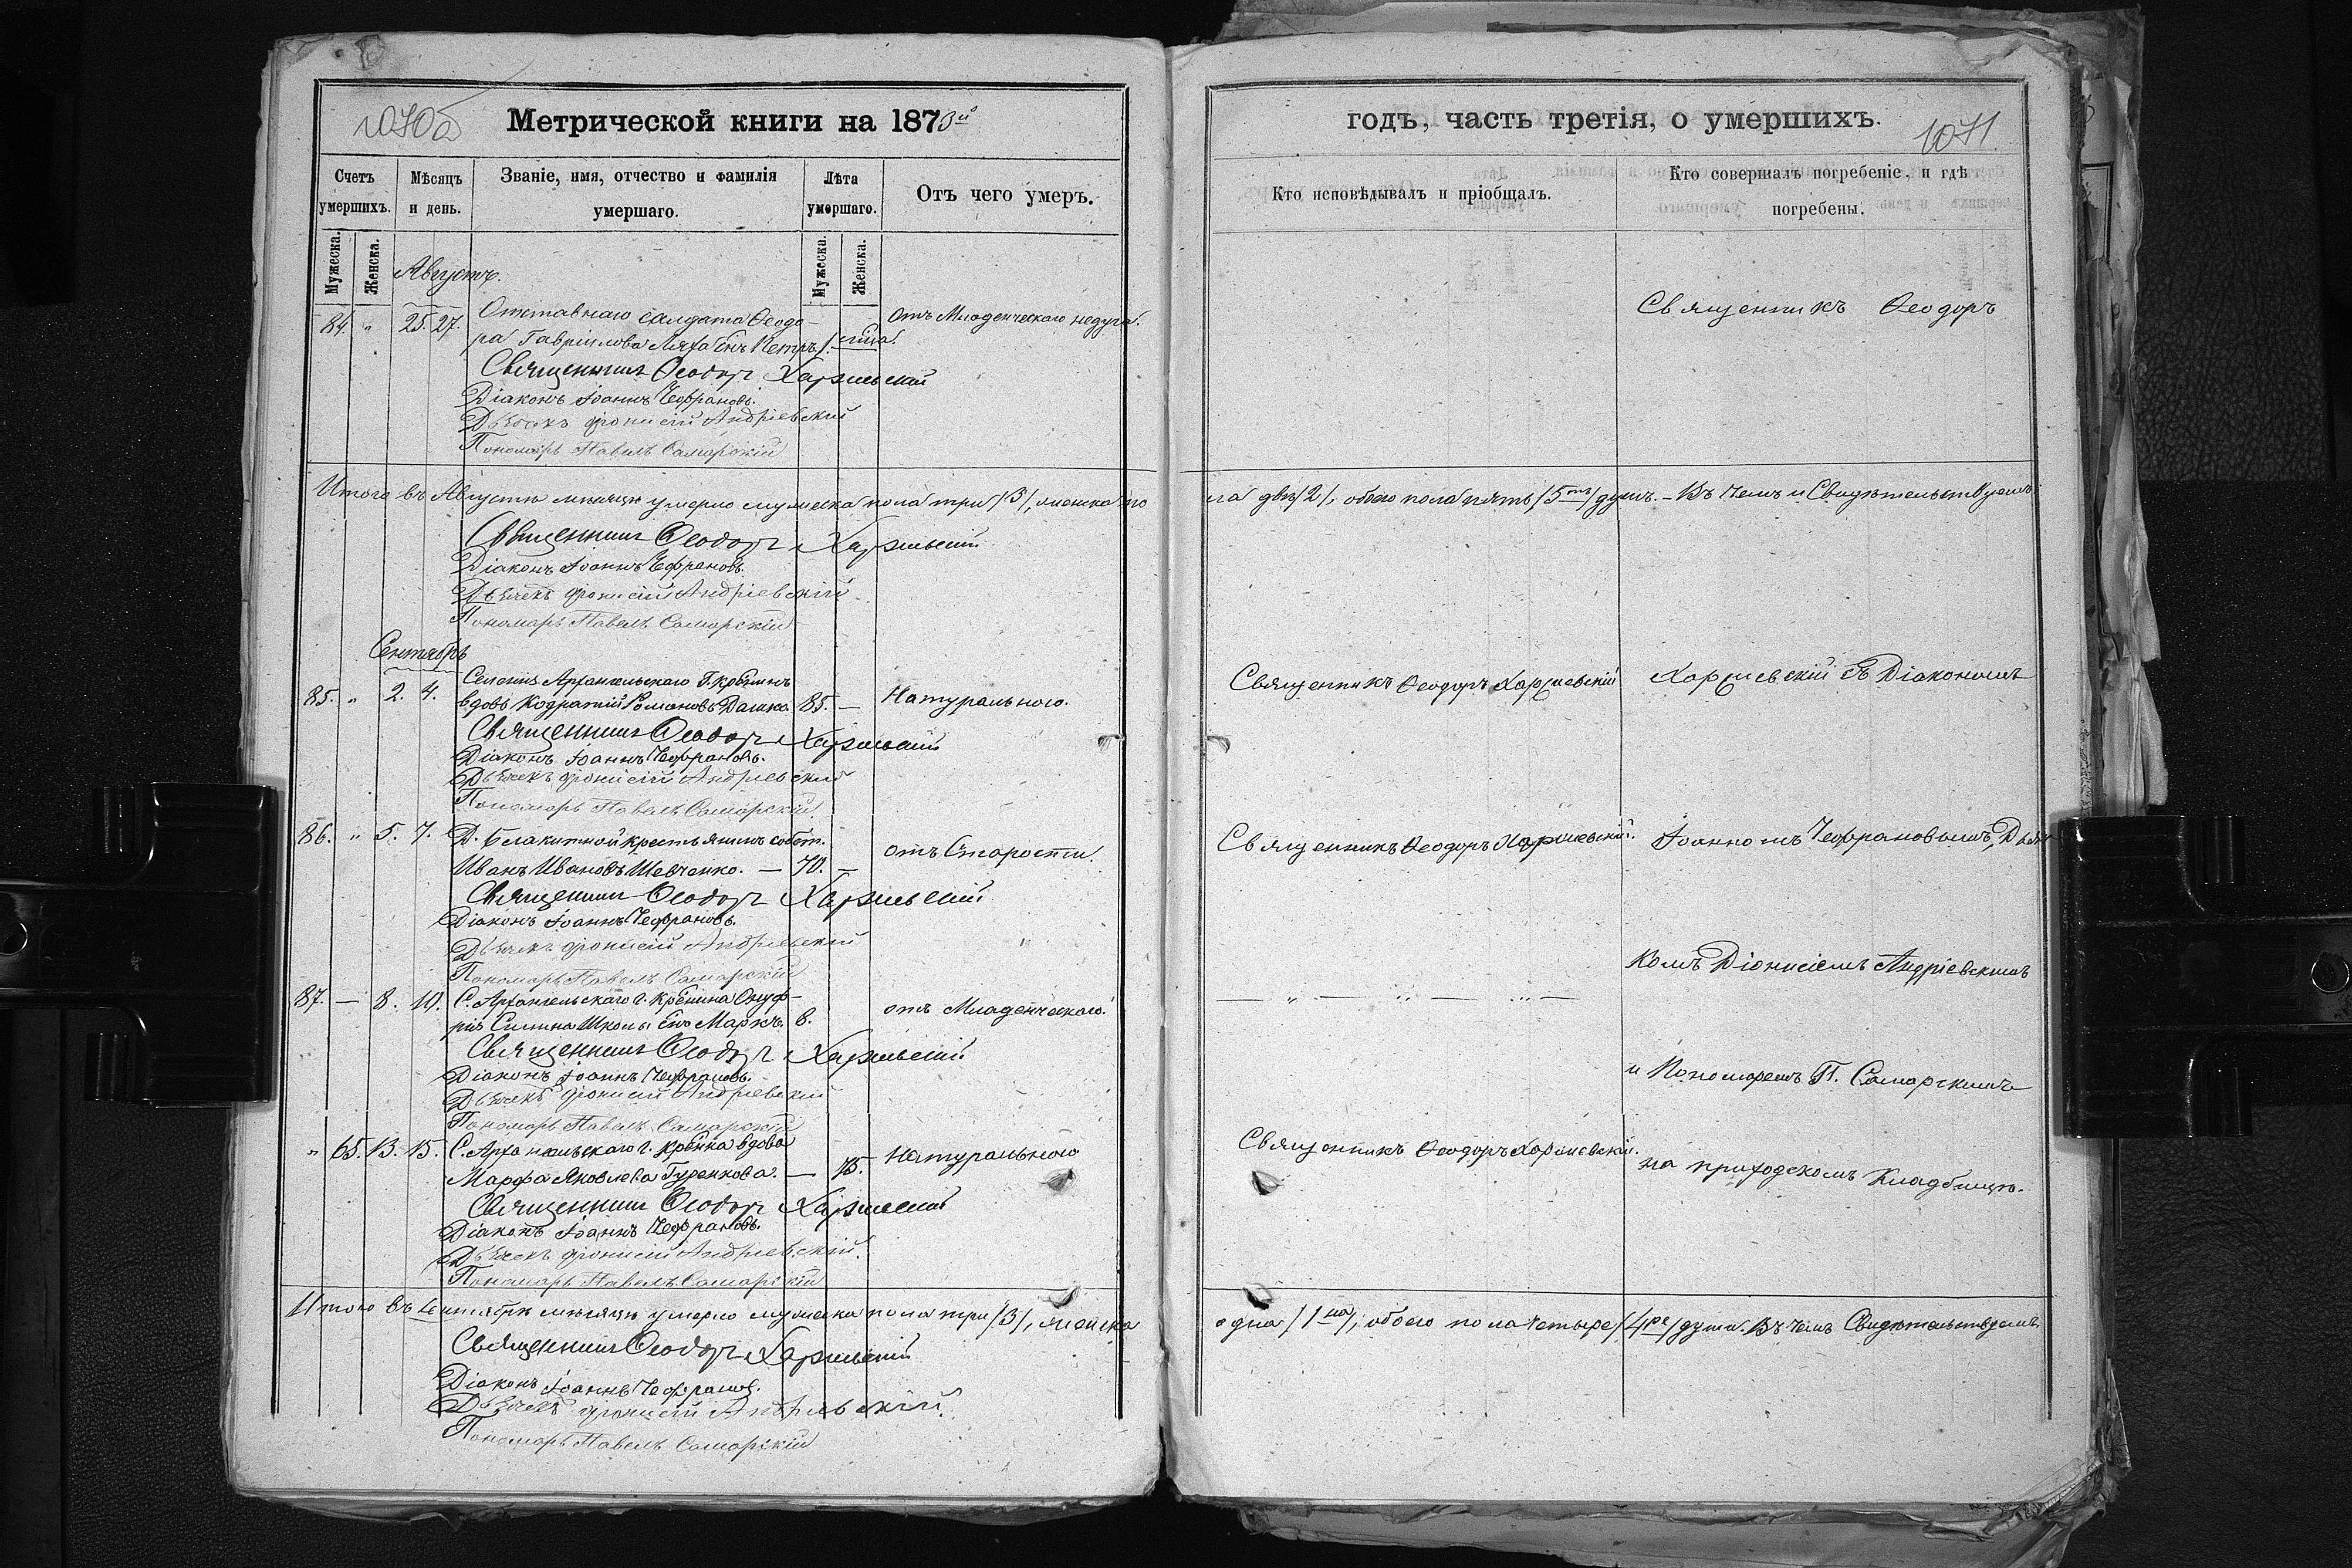 1070б
Метрической книги на 1873й
Счетъ умершихъ.
Мѣсяцъ и день.
Званіе, имя, отчество и фамилія умершаго.
Лѣта умершаго.
Отъ чего умеръ.
Мужеска.
Женска.
Мужеска.
Женска.
Августъ.
84. " 25. 27. Отставнаго салдата Ѳеодо- отъ Младенческаго недуга.
ра Гавріилова Ляха снъ Петръ
Священникъ Ѳеодоръ Харжевскій
Діаконъ Іоаннъ Чефрановъ.
Дьячекъ Діонисій Андріевский
Пономарь Павелъ Самарскій
Итого въ Августѣ мѣсяцѣ умерло мужеска пола три /3/, женска по
Священникъ Ѳеодоръ Харжевскій
Діаконъ Іоаннъ Чефрановъ.
Дьячекъ Діонисій Андріевскій
Пономарь Павелъ Самарскій
Сентябрь
85. " 2. 4. Селенія Архангельскаго Г. крестьнинъ
вдовъ Кодратій Романовъ Дашко. 85. — Натуральнаго.
Священникъ Ѳеодоръ Харжевскій
Діаконъ Іоаннъ Чефрановъ.
Дьячекъ Діонисій Андріевский
Пономарь Павелъ Самарскій
86. " 5. 7. Д. Благитной крестьянинъ собст.
Иванъ Ивановъ Шевченко. — 70. — отъ Старости.
Священникъ Ѳеодоръ Харжевскій
Діаконъ Іоаннъ Чефрановъ.
Дьячекъ Діонисій Андріевский
Пономарь Павелъ Самарскій
87. — 8. 10. С. Архангельскаго г. Крестьнина Онуф-
рія Силина Школы снъ Маркъ. 6. отъ Младенческаго.
Священникъ Ѳеодоръ Харжевскій
Діаконъ Іоаннъ Чефрановъ.
Дьячекъ Діонисій Андріевский
Пономарь Павелъ Самарскій
" 65. 13. 15. С. Архангельскаго г. крестьнка вдова
Марфа Яковлева Гуренкова. — 75. Натуральнаго
Священникъ Ѳеодоръ Харжевскій
Діаконъ Іоаннъ Чефрановъ.
Дьячекъ Діонисій Андріевскій.
Пономарь Павелъ Самарскій
Итого въ Сентябрѣ мѣсяцѣ умерло мужеска пола три /3/, женска
Священникъ Ѳеодоръ Харжевскій
Діаконъ Іоаннъ Чефрановъ.
Дьячекъ Діонисій Андріевскій.
Пономарь Павелъ Самарскій
годъ, часть третія, о умершихъ.
1071
Кто исповѣдывалъ и пріобщалъ.
Кто совершалъ погребеніе, и гдѣ погребены.
Священникъ Ѳеодоръ
ла двѣ /2/, обоего пола пять /5ть/ душъ. – Въ чемъ и Свидѣтельствуемъ:
Священникъ Ѳеодоръ Харжевскій Харжевскій съ Діакономъ
Священникъ Ѳеодоръ Харжевскій. Іоанномъ Чефрановымъ, Дьяч
комъ Діонисіемъ Андріевскимъ
— " — " — " —
и Пономаремъ П. Самарскимъ
Священникъ Ѳеодоръ Харжевскій.
на приходскомъ Кладбищѣ.
одна /1на/, обоего пола четыре /4ре/ душа. Въ чемъ Свидѣтельствуемъ